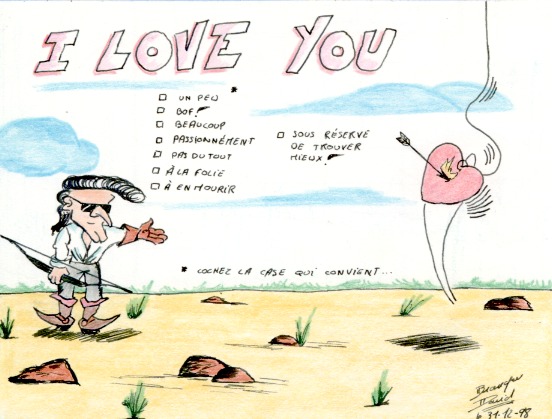 I LOVE YOU
*
UN PEU
BOF!
BEAUCOUP
PASSIONNÉMENT
PAS DU TOUT
À LA FOLIE
À EN MOURIR
SOUS RÉSERVE
DE TROUVER
MIEUX!
* COCHEZ LA CASE QUI CONVIENT...
David
31-12-98